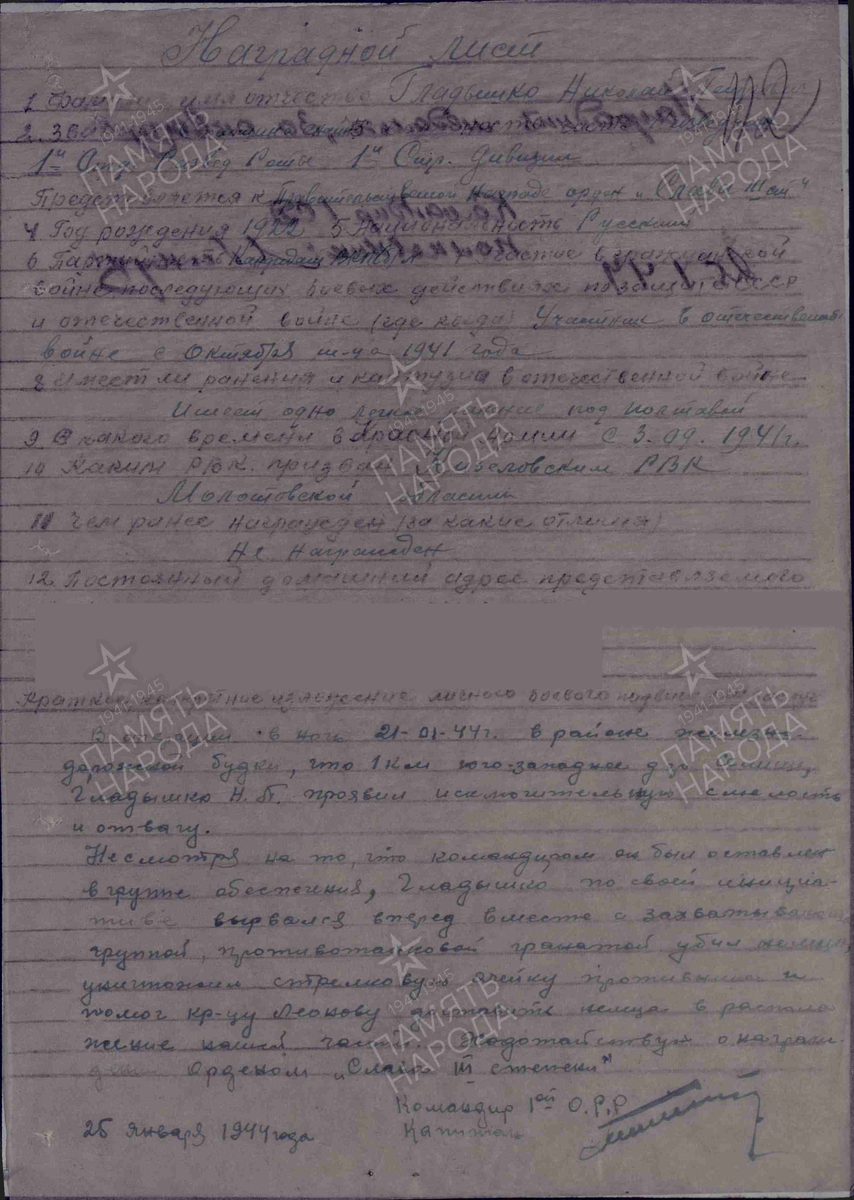 Наградной лист
1. Фамилия имя отчество Гладышко Николай
2. Звание
1ой Отд. Взвод Роты 1ой Стр. Дивизии
Представляется к Правительственной награде орден „Слава III ст"
4 Год рождения 1922 5 Национальность Русский
6 Партийность Кандидат 7 участие в гражданской
войне последующих боевых действиях по защите СССР
и отечественной войне (где когда) Участник в отечественной
войне с Октября м-ца 1941 года
8 Имеет ли ранения и контузии в отечественной войне
Имеет одно легкое ранение под Полтавой
9 С какого времени в Красной Армии С 3.09.1941г.
10 Каким РВК призван Кизеловским РВК
Молотовской области
11 Чем ранее награжден (за какие отличия)
Не награжден
12. Постоянный домашний адрес представляемого
Краткое конкретное изложение личного боевого подвига
В операции в ночь 21-01-44г. в районе железно-
дорожной будки, что 1 км юго-западнее
Гладышко Н.П. проявил исключительную смелость
и отвагу.
Несмотря на то, что командиром он был оставлен
в группе обеспечения, Гладышко по своей инициа-
тиве вырвался вперед вместе с захватывающей
группой, противотанковой гранатой убил немца,
уничтожил стрелковую ячейку противника и
помог кр-цу Леонову доставить немца в располо
жение нашей части. Ходатайствую о награж-
дении Орденом „Слава III степени"
Командир 1ой О.Р.Р
25 января 1944 года Капитан